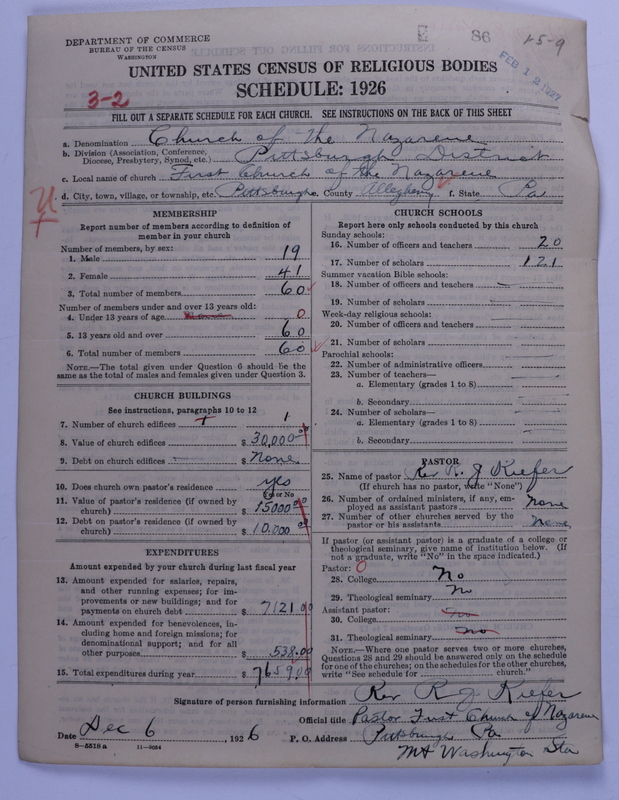 DEPARTMENT OF COMMERCE
BUREAU OF THE CENSUS
WASHINGTON
E 86
1-5-9
FEB 12 1927
UNITED STATES CENSUS OF RELIGIOUS BODIES
SCHEDULE: 1926
3-2
FILL OUT A SEPARATE SCHEDULE FOR EACH CHURCH. SEE INSTRUCTIONS ON THE BACK OF THIS SHEET
a. Denomination Church of the Nazarene
b. Division (Association, Conference, Diocese, Presbytery, Synod, etc.) Pittsburgh District
c. Local name of church First Church of the Nazarene
d. City, town, village, or township, etc. Pittsburgh County Allegheny f. State Pa
MEMBERSHIP
Report number of members according to definition of
member in your church
Number of members, by sex:
1. Male 19
2. Female 41
3. Total number of members 60
Number of members under and over 13 years old:
4. Under 13 years of age 0
5. 13 years old and over 60
6. Total number of members 60
NOTE.—The total given under Question 6 should be the
same as the total of males and females given under Question 3.
CHURCH BUILDINGS
See instructions, paragraphs 10 to 12
7. Number of church edifices 1
8. Value of church edifices $ 30,000.00
9. Debt on church edifices $ None
10. Does church own pastor's residence yes
(Yes or No)
11. Value of pastor's residence (if owned by
church) $ 15000 00
12. Debt on pastor's residence (if owned by
church) $ 10,000 00
EXPENDITURES
Amount expended by your church during last fiscal year
13. Amount expended for salaries, repairs,
and other running expenses; for im-
provements or new buildings; and for
payments on church debt $ 7121.00
14. Amount expended for benevolences, in-
cluding home and foreign missions; for
denominational support; and for all
other purposes $ 538.00
15. Total expenditures during year $ 7659.00
CHURCH SCHOOLS
Report here only schools conducted by this church
Sunday schools:
16. Number of officers and teachers 20
17. Number of scholars 121
Summer vacation Bible schools:
18. Number of officers and teachers
19. Number of scholars
Week-day religious schools:
20. Number of officers and teachers
21. Number of scholars
Parochial schools:
22. Number of administrative officers
23. Number of teachers—
a. Elementary (grades 1 to 8)
b. Secondary
24. Number of scholars—
a. Elementary (grades 1 to 8)
b. Secondary
PASTOR
25. Name of pastor Rev R. J Kiefer
(If church has no pastor, write "None")
26. Number of ordained ministers, if any, em-
ployed as assistant pastors none
27. Number of other churches served by the
pastor or his assistants none
If pastor (or assistant pastor) is a graduate of a college or
theological seminary, give name of institution below. (If
not a graduate, write "No" in the space indicated.)
Pastor: 0
28. College No
29. Theological seminary No
Assistant pastor:
30. College no
31. Theological seminary no
NOTE.—Where one pastor serves two or more churches,
Questions 28 and 29 should be answered only on the schedule
for one of the churches; on the schedules for the other churches,
write "See schedule for church."
Signature of person furnishing information Rev R. J Kiefer
Official title Pastor First Church of Nazarene
Date Dec 6, 1926 P. O. Address Pittsburgh Pa
8-5518 a 11-9054
Mt Washington Sta